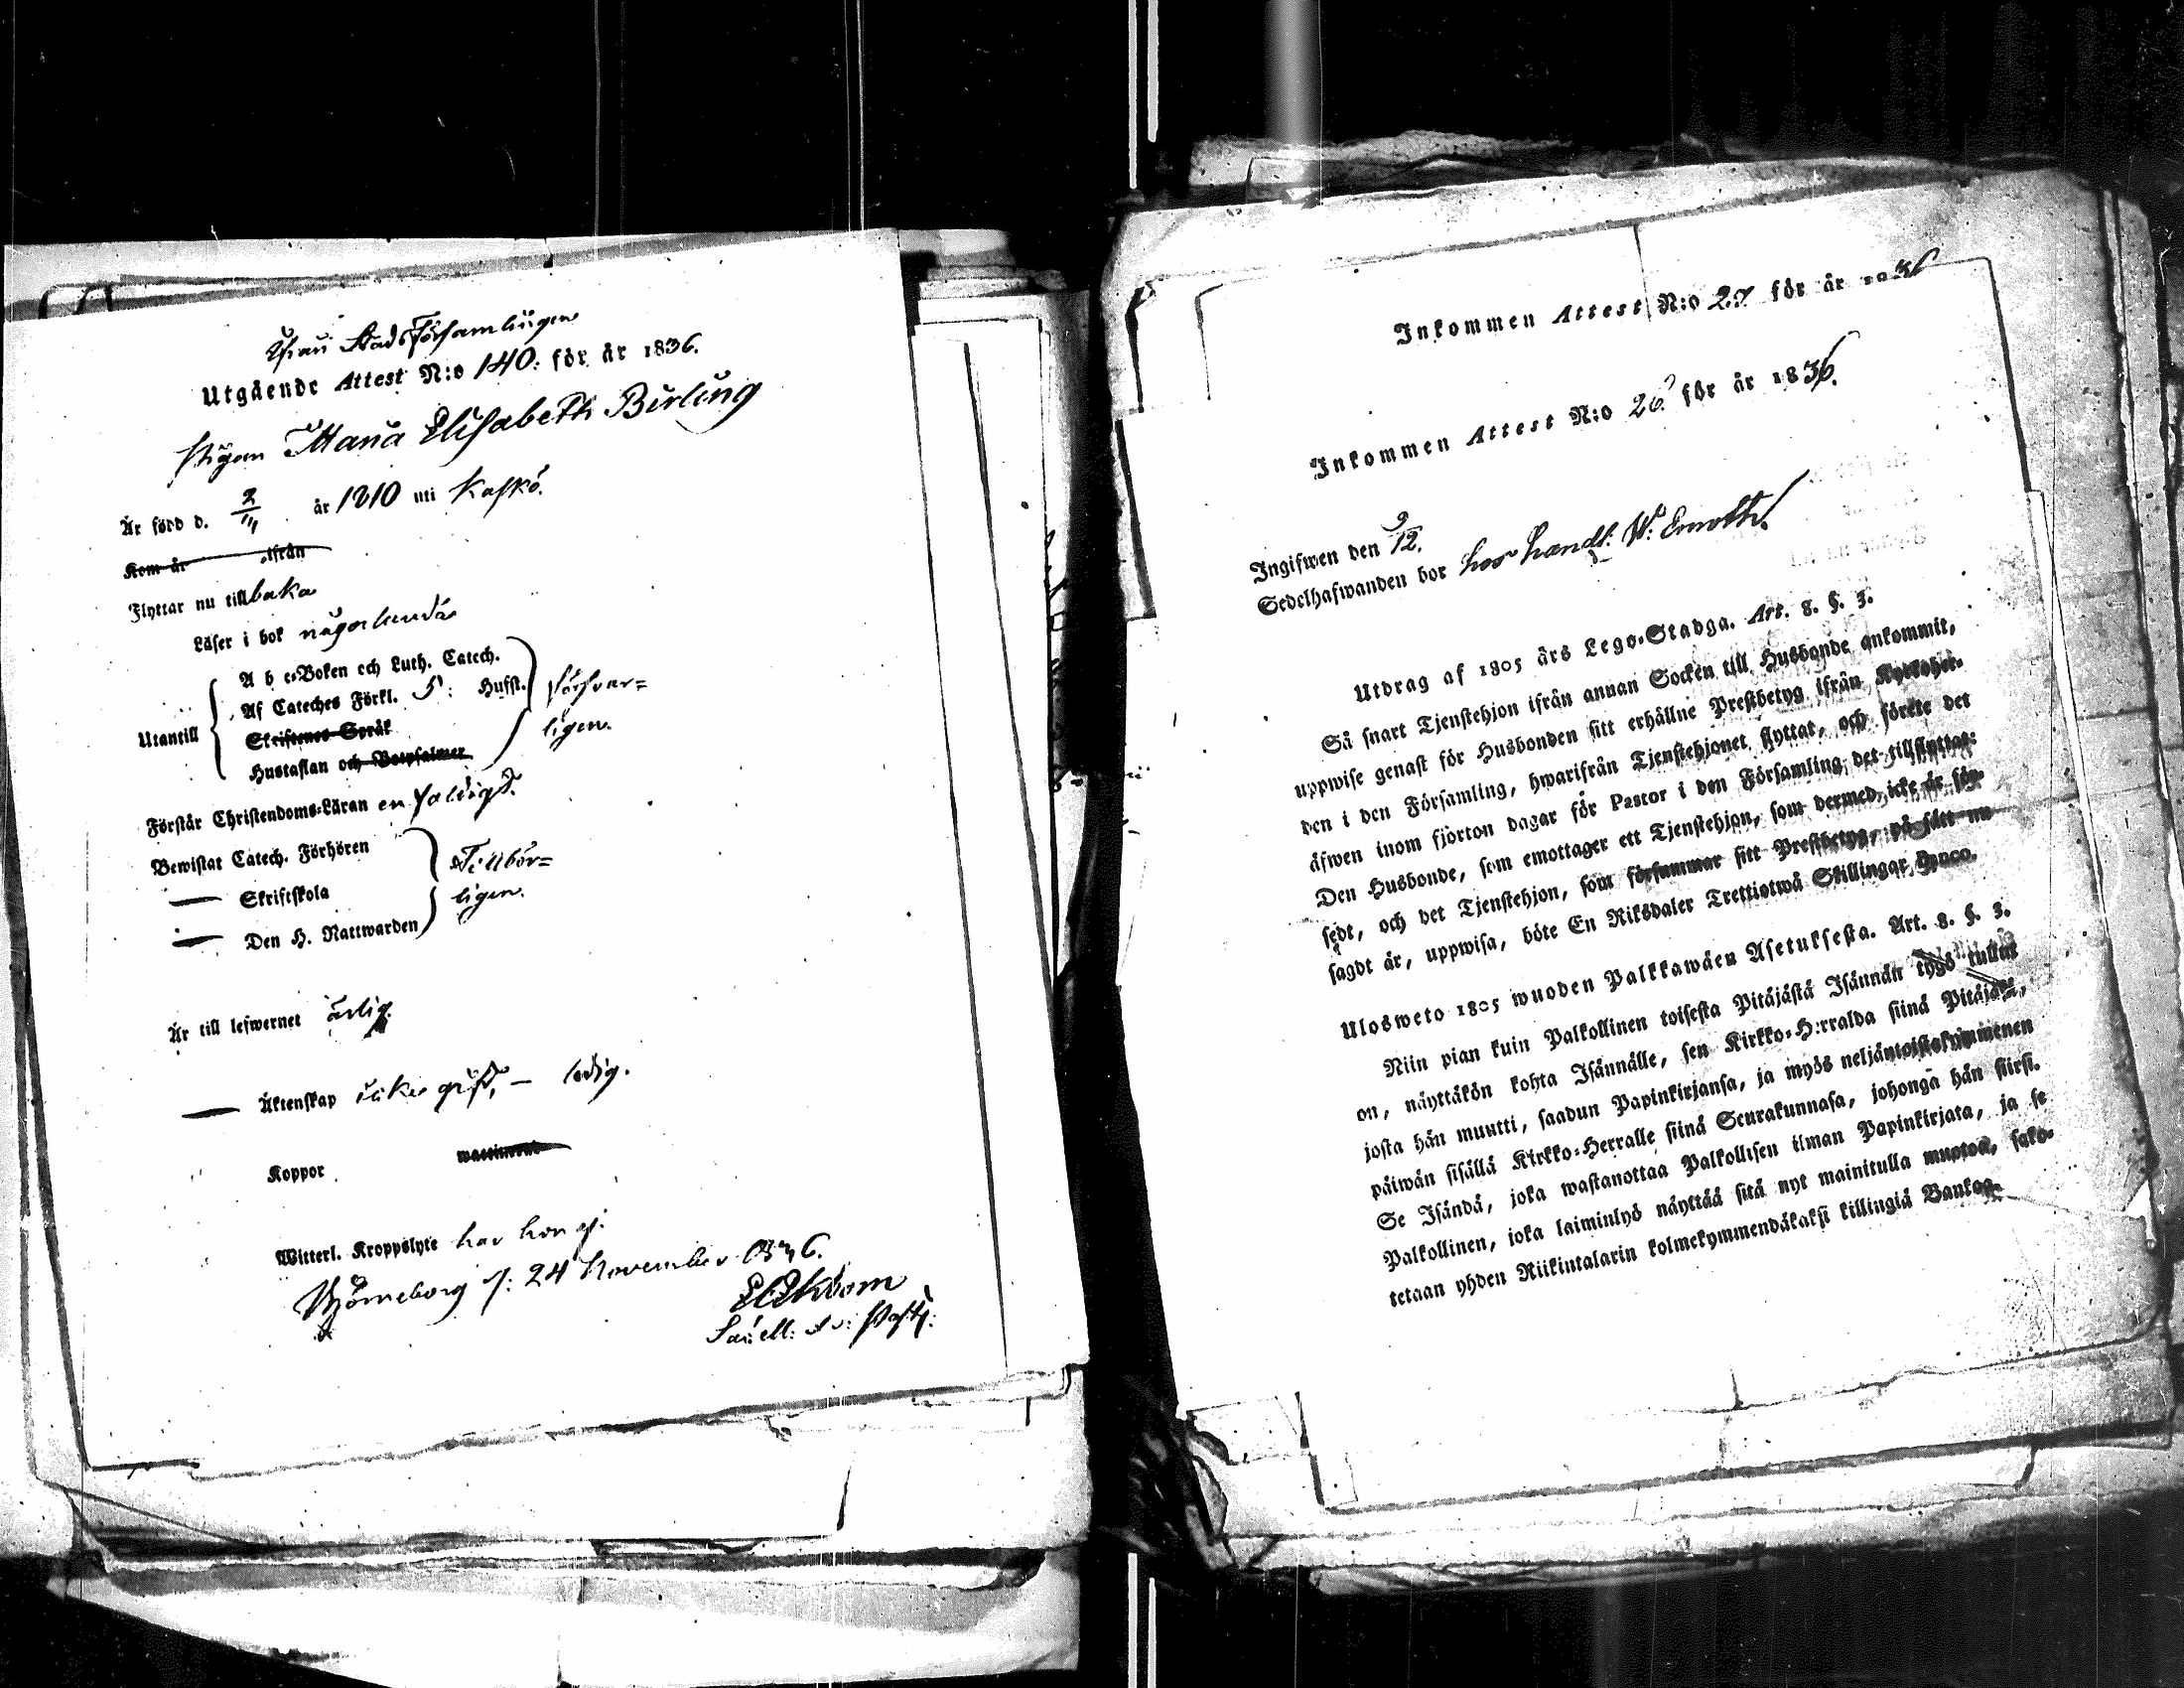 ifrån Stads Församlingen
Utgående Attest N:o 140: för år 1836.
Pigan Maria Elisabeth Birling
Är född d. 2/11 år 1810 uti Kaskö.
Kom år ifrån
Flyttar nu tillbaka
Läser i bok någorlunda
A b c-Boken och Luth. Catech.
Af Cateches Förkl. 5: Husst.
Utantill
Skriftenes Språk
Hustaflan och Botpsalmer
försvar=
ligen.
Förstår Christendoms-Läran enfaldigt.
Bewistat Catech. Förhören
— Skriftskola
— Den H. Nattwarden
Tillbör=
ligen.
Är till lefwernet ärlig.
— Äktenskap icke gift, — ledig.
Koppor
Witterl. Kroppslyte har hon ej.
Björneborg d: 24 November 1836.
Inkommen Attest N:o 27 för år 1836
Inkommen Attest N:o 26 för år 1836.
Ingifwen den 9/12.
Sedelhafwanden bor hos handl: W:
Utdrag af 1805 års Lego-Stadga. Art. 8. §. 3.
Så snart Tjenstehjon ifrån annan Socken till Husbonde ankommit,
uppwise genast för Husbonden sitt erhållne Prestbetyg ifrån Kyrkoher-
den i den Församling, hwarifrån Tjenstehjonet flyttat, och förete det
äfwen inom fjorton dagar för Pastor i den Församling det tillflyttat:
Den Husbonde, som emottager ett Tjenstehjon, som dermed icke är för-
sedt, och det Tjenstehjon, som försummar sitt Prestbetyg, på sätt nu
sagdt är, uppwisa, böte En Riksdaler Trettiotwå Skillingar Banco.
Ulosweto 1805 wuoden Palkkawäen Asetuksesta. Art. 8. §. 3.
Niin pian kuin Palkollinen toisesta Pitäjästä Isännän tygö tullut
on, näyttäkön kohta Isännälle, sen Kirkko-Herralda siinä Pitäjäsä,
josta hän muutti, saadun Papinkirjansa, ja myös neljäntoistakymmenen
päiwän sisällä Kirkko-Herralle siinä Seurakunnasa, johonga hän siirsi.
Se Isändä, joka wastanottaa Palkollisen ilman Papinkirjata, ja se
Palkollinen, joka laiminlyö näyttää sitä nyt mainitulla muotoa, sako-
tetaan yhden Riikintalarin kolmekymmendäkaksi killingiä Bankoa.